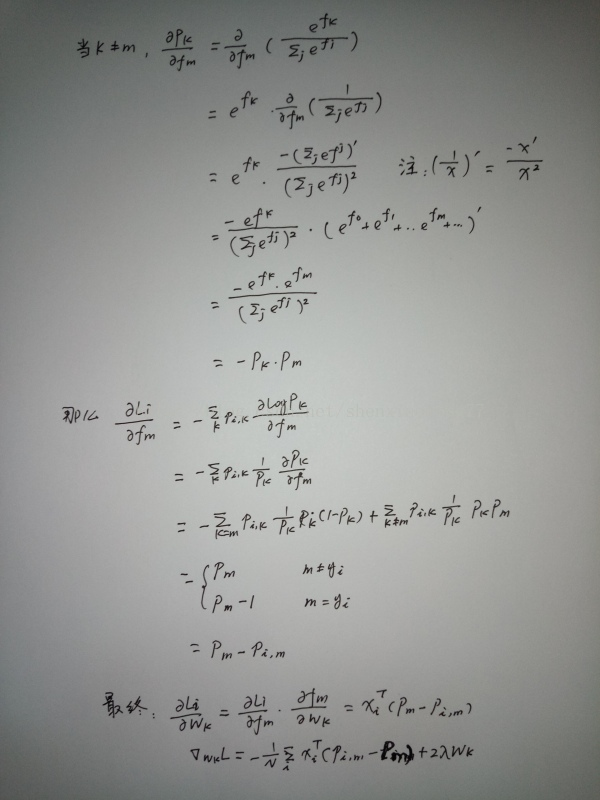 当 k ≠ m, ∂Pk/∂fm = ∂/∂fm ( e^fk / Σj e^fj )
= e^fk · ∂/∂fm ( 1 / Σj e^fj )
= e^fk · -(Σj e^fj)' / (Σj e^fj)² 注: (1/x)' = -x' / x²
= -e^fk / (Σj e^fj)² · ( e^f0 + e^f1 + .. e^fm + ... )'
= -e^fk · e^fm / (Σj e^fj)²
= - Pk · Pm
那么 ∂Li/∂fm = - Σk Pi,k ∂logPk/∂fm
= - Σk Pi,k 1/Pk ∂Pk/∂fm
= - Σk=m Pi,k 1/Pk Pk(1-Pk) + Σk≠m Pi,k 1/Pk PkPm
= { Pm m ≠ yi
Pm - 1 m = yi
= Pm - Pi,m
最终: ∂Li/∂Wk = ∂Li/∂fm · ∂fm/∂Wk = xi^T (Pm - Pi,m)
∇WkL = - 1/N Σi xi^T (Pi,m - Pm) + 2λWk